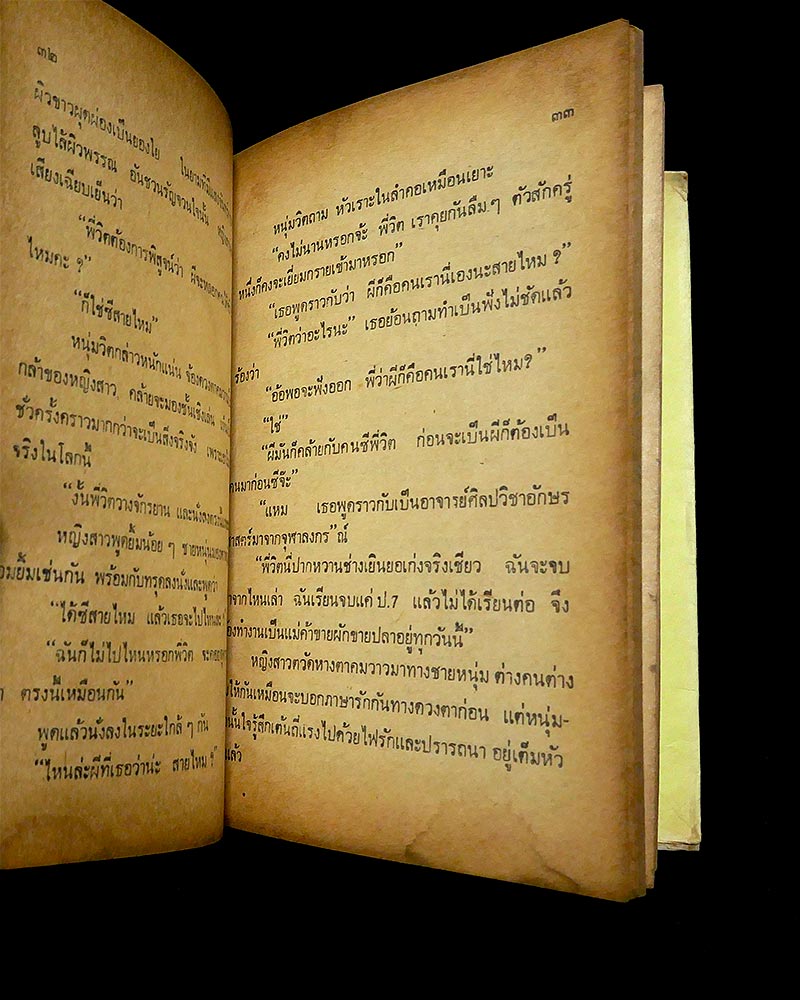 ๓๒
ผิวขาวผุดผ่องเป็นยองใย ในยามที่มี
ลูบไล้ผิวพรรณ อันชวนรัญจวนใจนั้น
เสียงเฉียบเย็นว่า
“พี่วิตต้องการพิสูจน์ว่า ผีจะหลอก
ไหมคะ ?”
“ก็ใช่ซีสายไหม”
หนุ่มวิตกล่าวหนักแน่น จ้องดวงตา
กล้าของหญิงสาว คล้ายจะมองชั้นเชิงเล่น
ชั่วครั้งคราวมากกว่าจะเป็นสิ่งจริงจัง เพราะ
จริงในโลกนี้
“งั้นพี่วิตวางจักรยาน และนั่งลงตรงนี้
หญิงสาวพูดยิ้มน้อย ๆ ชายหนุ่ม
ยิ้มเช่นกัน พร้อมกับทรุดลงนั่งและพูดว่า
“ได้ซีสายไหม แล้วเธอจะไปไหน
“ฉันก็ไม่ไปไหนหรอกพี่วิต จะคอย
ตรงนี้เหมือนกัน”
พูดแล้วนั่งลงในระยะใกล้ ๆ กัน
“ไหนล่ะผีที่เธอว่าน่ะ สายไหม ?”
๓๓
หนุ่มวิตถาม หัวเราะในลำคอเหมือนเยาะ
“คงไม่นานหรอกจ้ะ พี่วิต เราคุยกันลืม.ๆ ตัวสักครู่
หนึ่งก็คงจะเยี่ยมกรายเข้ามาหรอก”
“เธอพูดราวกับว่า ผีก็คือคนเรานี่เองนะสายไหม ?”
“พี่วิตว่าอะไรนะ” เธอย้อนถามทำเป็นฟังไม่ชัดแล้ว
ร้องว่า
“อ้อพอจะฟังออก พี่ว่าผีก็คือคนเรานี่ใช่ไหม?”
“ใช่”
“ผีมันก็คล้ายกับคนซีพี่วิต ก่อนจะเป็นผีก็ต้องเป็น
คนมาก่อนซีจ๊ะ”
“แหม เธอพูดราวกับเป็นอาจารย์ศิลปวิชาอักษร
าสตร์มาจากจุฬาลงกร”ณ์
“พี่วิตนี่ปากหวานช่างเยินยอเก่งจริงเชียว ฉันจะจบ
าจากไหนเล่า ฉันเรียนจบแค่ ป.7 แล้วไม่ได้เรียนต่อ จึง
องทำงานเป็นแม่ค้าขายผักขายปลาอยู่ทุกวันนี้”
หญิงสาวตวัดหางตาคมวาวมาทางชายหนุ่ม ต่างคนต่าง
ให้กันเหมือนจะบอกภาษารักกันทางดวงตาก่อน แต่หนุ่ม-
นั้นใจรู้สึกเต้นถี่แรงไปด้วยไฟรักและปรารถนา อยู่เต็มหัว
แล้ว